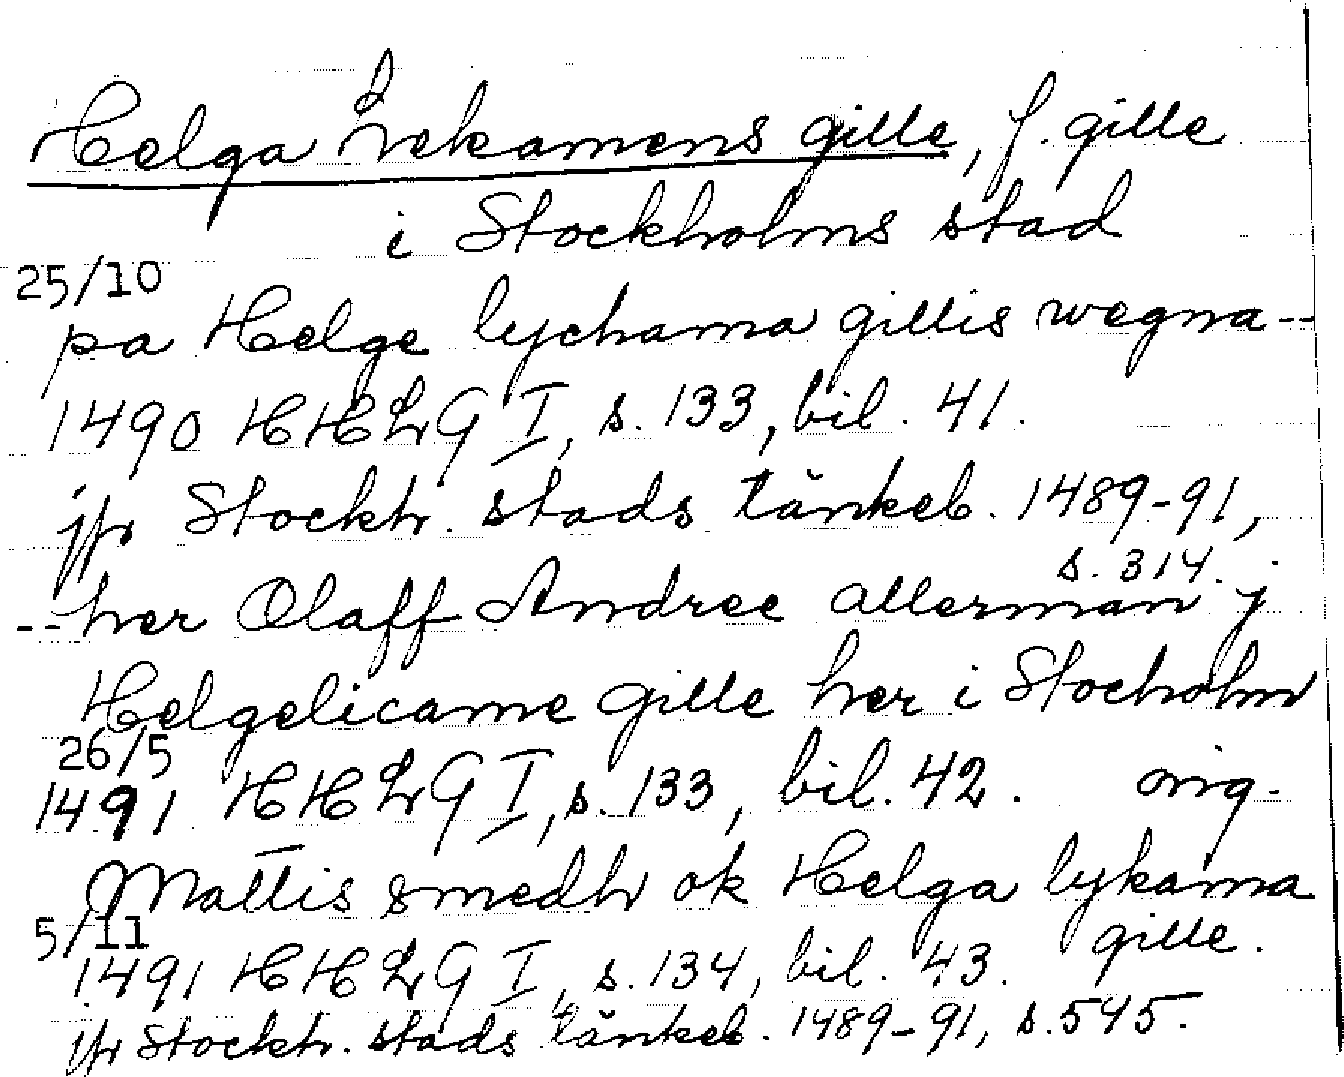 Helga Lekamens gille, f. gille
i Stockholms stad
25/10
pa Helge lychama gillis wegna--
1490 HHLG I, s. 133, bil. 41.
jfr Stockh. stads tänkeb. 1489-91,
s. 314.
--her Olaff Andree allerman j
Helgelicame gille her i Stocholm
26/5
1491 HHLG I, s. 133, bil. 42. orig.
Mattis smedh ok Helga lykama
gille.
5/11
1491 HHLG I, s. 134, bil. 43.
jfr Stockh. stads tänkeb. 1489-91, s. 545.